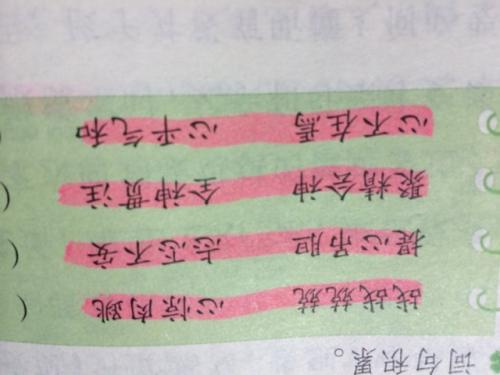 词句积累。
战战兢兢 心惊肉跳 (
提心吊胆 忐忑不安 (
聚精会神 全神贯注 (
心不在焉 心平气和 (